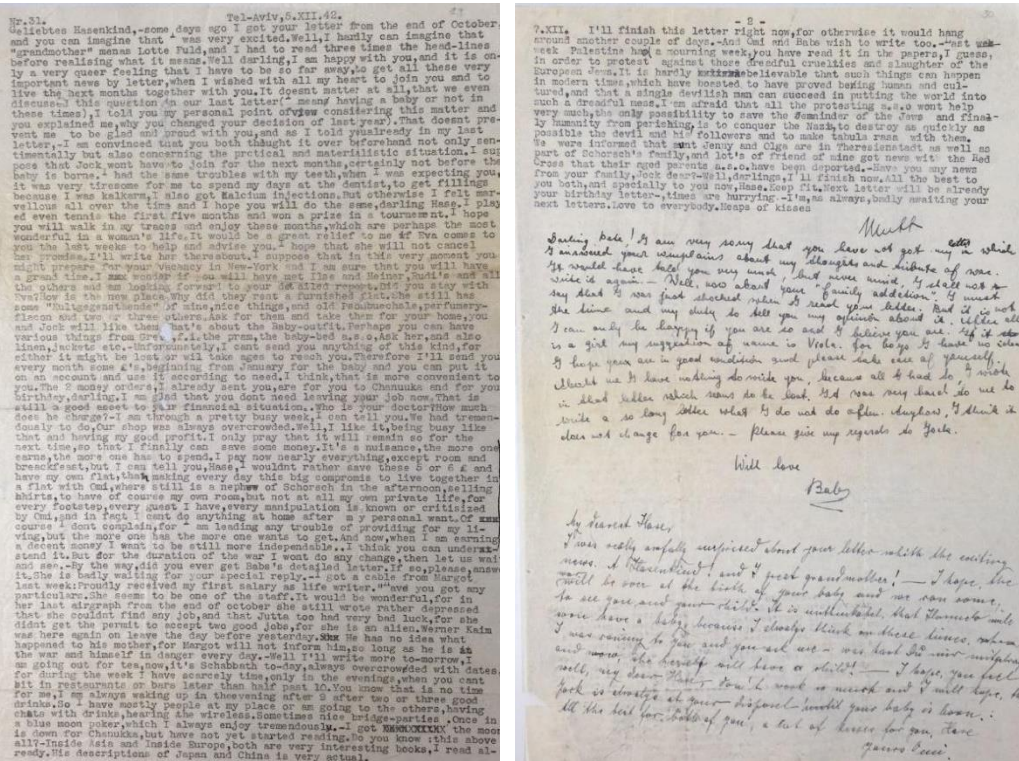 Nr.31. Tel-Aviv,5.XII.42.
Geliebtes Hasenkind,-some days ago I got your letter from the end of October,
and you can imagine that I was very excited.Well,I hardly can imagine that
"grandmother" menas Lotte Fuld,and I had to read three times the head-lines
before realising what it means.Well darling,I am happy with you,and it is on-
ly a very queer feeling that I have to be so far away,to get all these very
important news by letter,when I wished with all my heart to join you and to
live the next months together with you.It doesnt matter at all,that we even
discused this question in our last letter( I mean having a baby or not in
these times),I told you my personal point of view considering this matter and
you explained me,why you changed your decision of last year).That doesnt pre-
vent me to be glad and proud with you,and as I told you already in my last
letter,-I am convinced that you both thought it over beforehand not only sen-
timentally but also concerning the prctical and materialistic situation.I sup
poes that Jock wont have to join for the next months,certainly not before the
baby is borne.I had the same troubles with my teeth,when I was expecting you,
it was very tiresome for me to spend my days at the dentist,to get fillings
because I was kalkarm,I also got Kalcium injections.But otherwise I felt mar-
vellous all over the time and I hope you will do the same,darling Hase.I play
ed even tennis the first five months and won a prize in a tournement.I hope
you will walk in my traces and enjoy these months,which are perhaps the most
wonderful in a woman's life.It would be a great relief to me if Eva comes to
you the last weeks to help and advise you.I hope that she will not cancel
her promise.I'll write her thereabout.I suppose that in this very moment you
might prepare for your vacancy in New-York and I am sure that you will have
a great time.I wonder if you will have met Ilse and Heiner,Rudi's and all
the others and am looking forward to your detailed report.Did you stay with
Eva?How is the new place.Why did they rent a furnished flat.She still has
some "Kultgegenstände" of mine,nice things,and old perfumery-
flacon and two or three others.Ask for them and take them for your home,you
and Jock will like them.That's about the Baby-outfit.Perhaps you can have
various things from Eva f.i.the pram,the baby-bed a.s.o.Ask her,and also
linen,jackets etc.-Unfortunately,I cant send you anything of this kind,for
either it might be lost or wil take ages to reach you.Therefore I'll send you
every month some £'s,beginning from January for the baby and you can put it
on an account and use it according to need.I think,that is more convenient to
you.The 2 money orders,I already sent you,are for you to Chanukka end for you
birthday,darling.I am glad that you dont need leaving your job now.That is
still a good asset to your financial situation.Who is your doctor?How much
does he charge?-I am through a pretty busy week,I can tell you.We had tremen-
dously to do,Our shop was always overcrowded.Well,I like it,being busy like
that and having my good profit.I only pray that it will remain so for the
next time,so that I finally can save some money.It's a nuisance,the more one
earns,the more one has to spend.I pay now nearly everything,except room and
breeckfast,but I can tell you,Hase,I wouldnt rather save these 5 or 6 £ and
have my own flat,than making every day this big compromise to live together in
a flat with Omi,where still is a nephew of Schorsch in the afternoon,selling
shirts,to have of course my own room,but not at all my own private life,for
every footstep,every guest I have,every manipulation is known or critisized
by Omi,and in fact I cant do anything at home after my personal want.Of
course I dont complain,for I am leading any trouble of providing for my li-
ving,but the more one has the more one wants to get.And now,when I am earning
a decent money I want to be still more independable..I think you can under-
stend it.But for the duration of the war I wont do any change,then let us wait
and see.-By the way,did you ever get Baba's detailed letter.If so,please,answe
it.She is badly waiting for your special reply.-I got a cable from Margot
last week:Proudly received my first salary as life writer."Have you got any
particulars.She seems to be one of the staff.It would be wonderful,for in
her last airgraph from the end of october she still wrote rather depressed
that she couldnt find any job,and that Jutta too had very bad luck,for she
didnt get the permit to accept two good jobs,for she is an alien.Werner Kaim
was here again on leave the day before yesterday. He has no idea what
happened to his mother,for Margot will not inform him,so long as he is in
the war and himself in danger every day.-Well I'll write more to-morrow,I
am going out for tea,now,it's Schabbath to-day,always overcrowded with dates,
for during the week I have scarcely time,only in the evenings,when you cant
bit in restaurants or bars later than half past 10.You know that is no time
for me,I am always waking up in the evening after 9 after two or three good
drinks.So I have mostly people at my place or am going to the others,having
chats with drinks,hearing the wireless.Sometimes nice bridge-parties.Once in
a blue moon poker,which I always enjoy tremendously.-I got the moon
is down for Chanukka,but have not yet started reading.Do you know :this above
all?-Inside Asia and Inside Europe,both are very interesting books,I read al-
ready.His descriptions of Japan and China is very actual.
- 2 -
7.XII. I'll finish this letter right now,for otherwise it would hang
around another couple of days.-And Omi and Babs wish to write too.-Last
week Palestine had a mourning week,you have read it in the papers,I guess,
in order to protest against those dreadful cruelties and slaughter of the
European Jews.It is hardly believable that such things can happen
in modern times,which have boasted to have proved being humn and cul-
tured,and that a single devilish man can succeed in putting the world into
such a dreadful mess.I'm afraid that all the protesting a.s.o wont help
very much,the only possibility to save the remainder of the Jews and final-
ly humanity from periching,is to conquer the Nasis,to destroy as quickly as
possible the devil and his followers and to make tabula rasa with them.
We were informed that aunt Jenny and Olga are in Theresienstadt as well as
part of Schorsch's family,and lot's of friend of mine got news with the Red
Cross that their aged parents a.s.o.have been deported.-Have you any news
from your family,Jock dear?-Well,darlings,I'll finish now.All the best to
you both,and specially to you now,Hase.Keep fit.Next letter will be already
your birthday letter-,times are hurrying.-I'm,as always,badly awaiting your
next letters.Love to everybody.Heaps of kisses
Mutti
Darling Hase! I am very sorry that you have not got my letter in which
I answered your complains about my thoughts and tribute of war.
It would have told you very much, but never mind, I shall not
write it again. - Well, now about your "family addiction". I must
say that I was just shocked when I read your letter. But it is not
the time and my duty to tell you my opinion about it. After all
I can only be happy if you are so and I believe you are. If it
is a girl my suggestion of name is Viola. For boys I have no idea.
I hope you are in good condition and please take care of yourself.
About me I have nothing to write you, because all I had to, I wrote
in that letter which seems to be lost. It was very hard to me to
write a so long letter what I do not do often. Anyhow, I think it
does not change for you. - Please give my regards to Jock.
With love
Baby
My dearest Hase,
I was really awfully surprised about your letter with the exciting
news. A Hasenkind! and I great grandmother! - I hope, the
will be over at the birth of your baby and we can come,
to see you and your child. It is unthinkable that will
have a baby because I always think on these times, when
I was coming to you and you ask me - was hast Du mir mitgebracht
and now, she herself will have a child! - I hope, you feel
well, my dear Hase, don't work so much and I will hope, that
Jock is always at your disposal until your baby is born.
All the best for both of you, a lot of kisses for you, dear
yours Omi